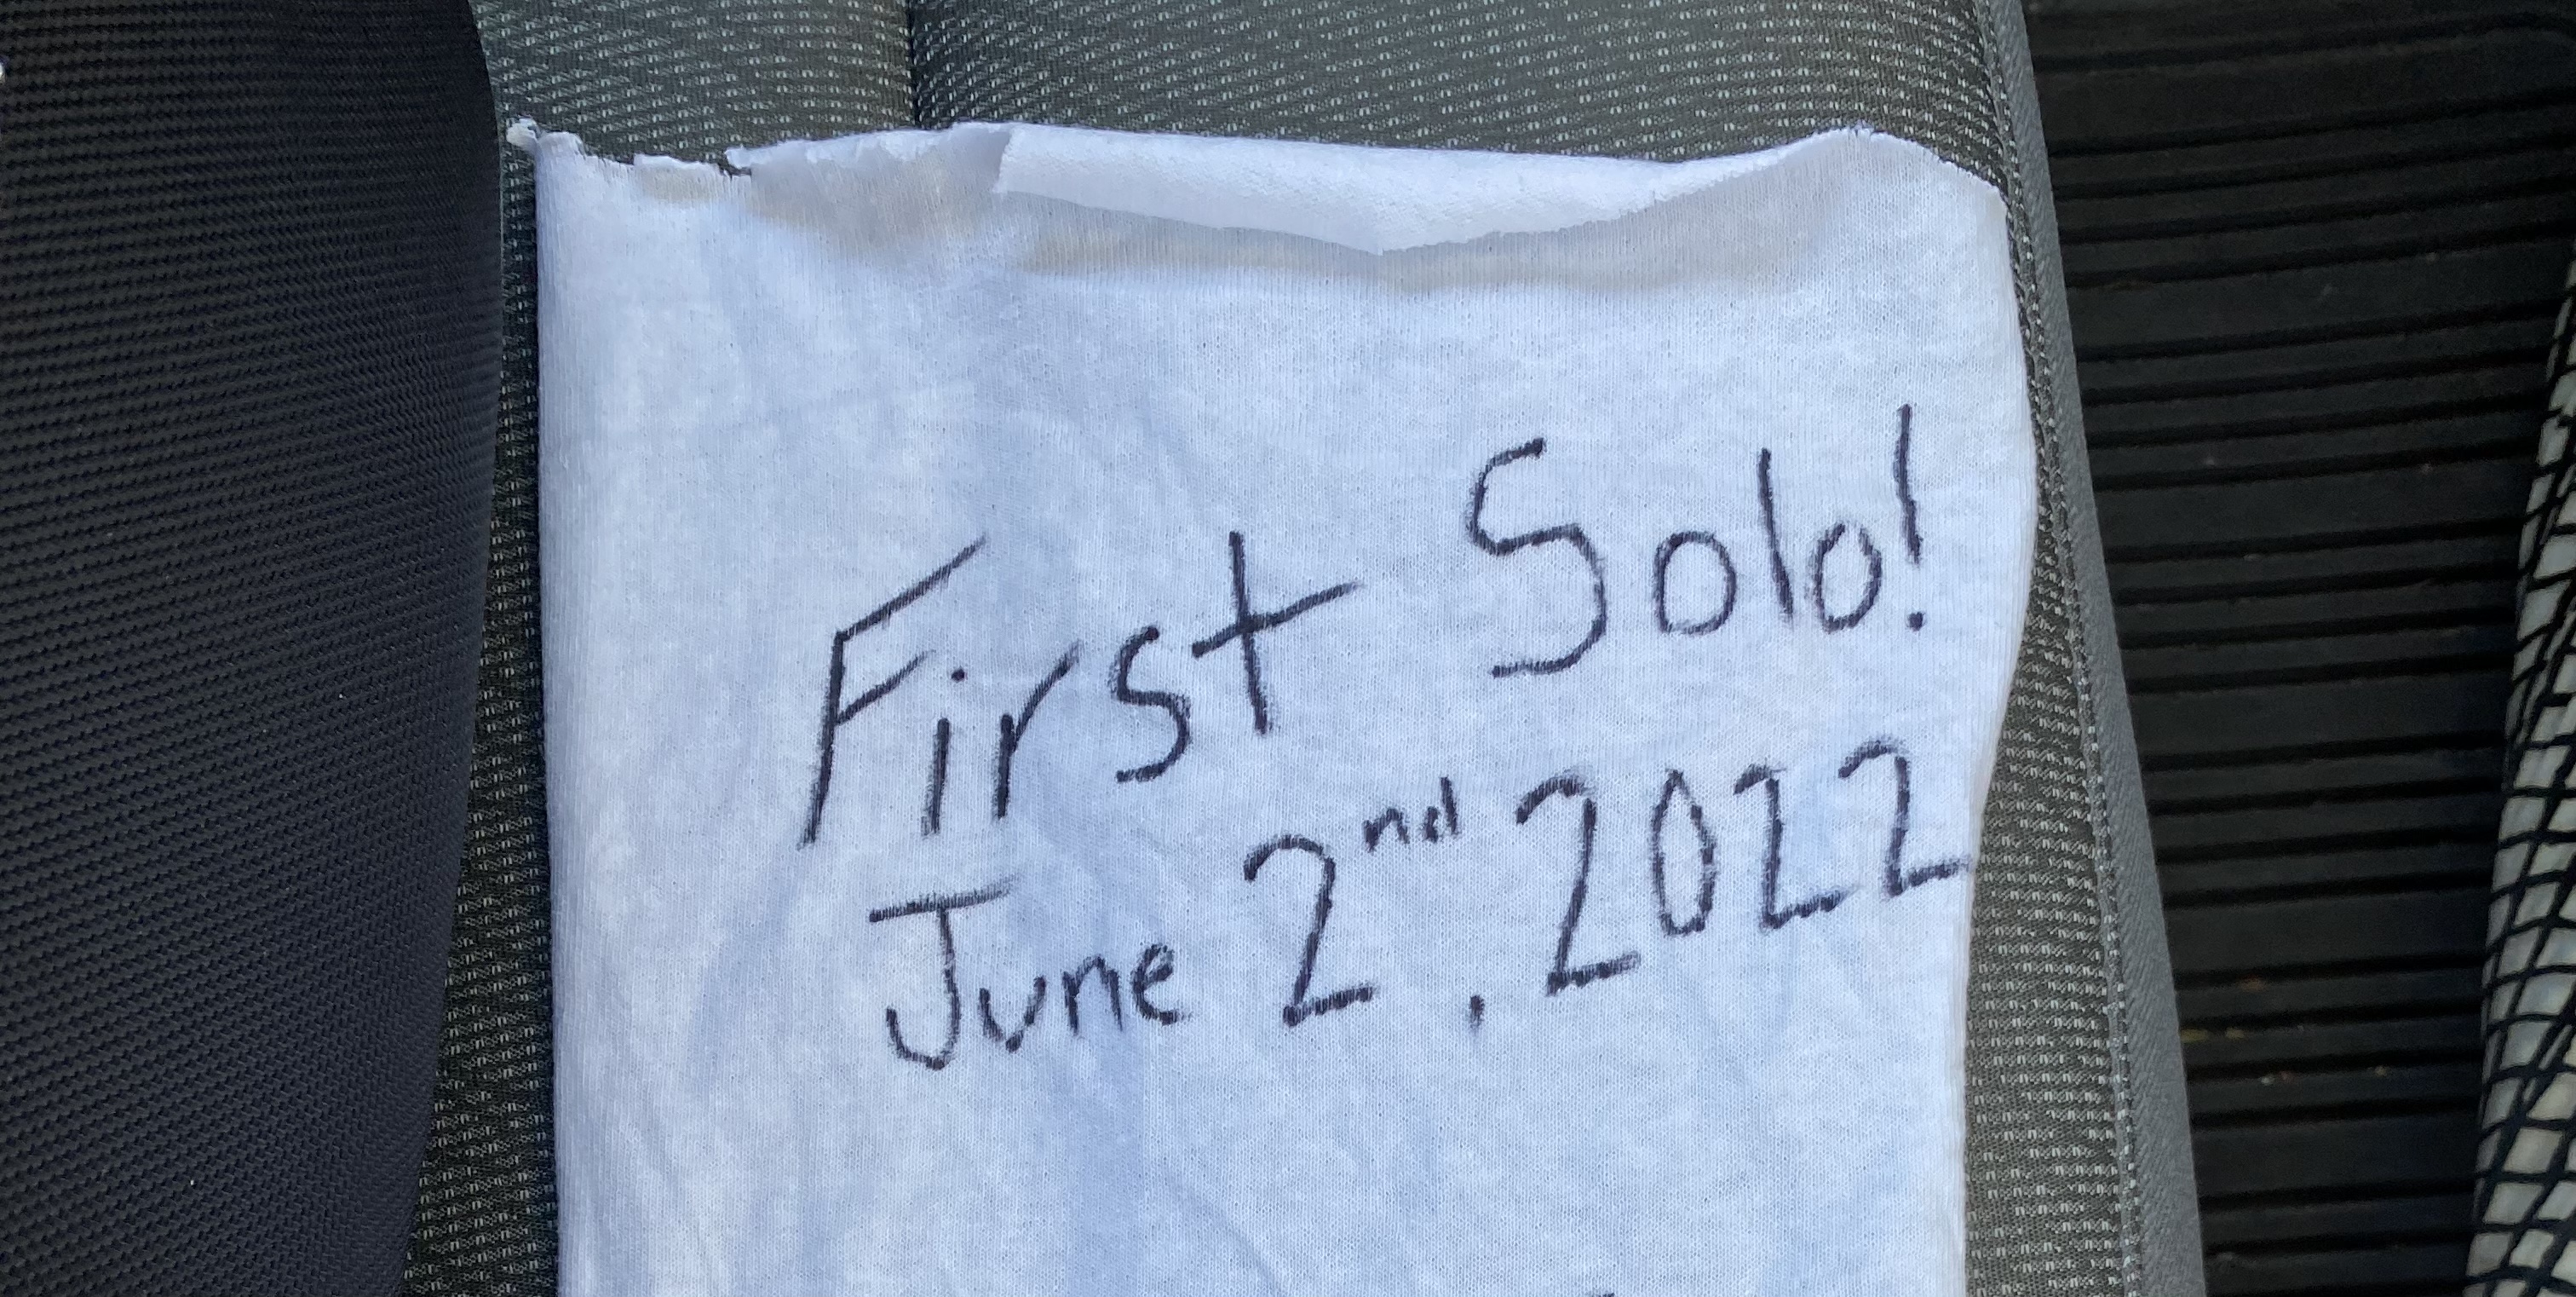 First Solo!
June 2nd, 2022